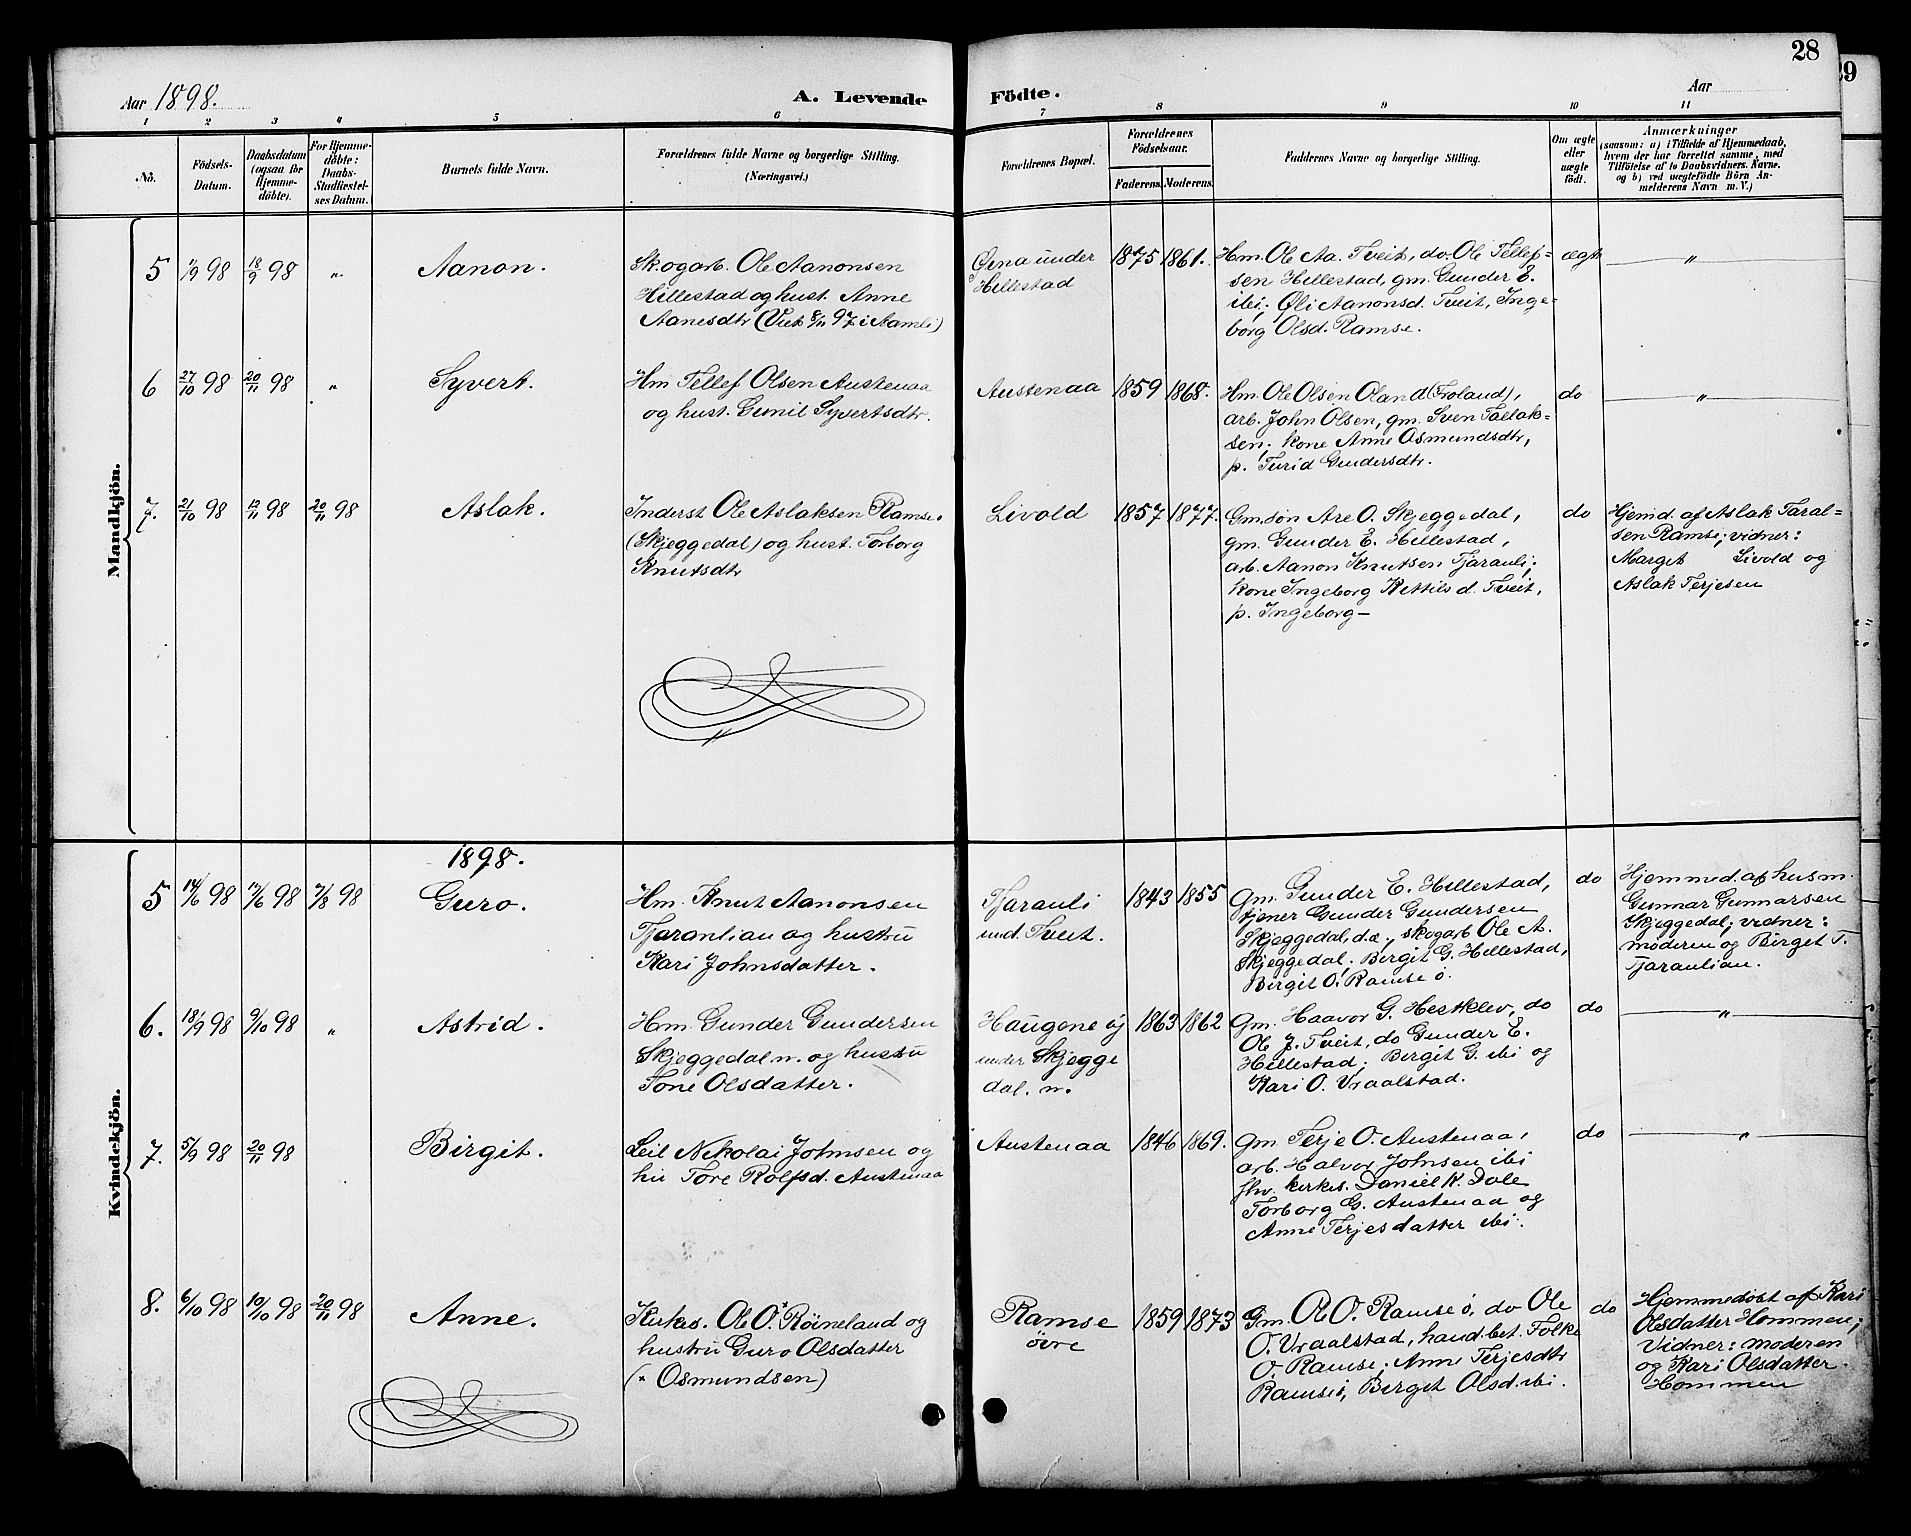 28
29
Aar 1898.
A. Levende Födte.
Aar
1 2 3 4 5 6 7 8 9 10 11
No.
Födsels-
Datum.
Daabsdatum
(ogsaa for
Hjemme-
döbte).
For Hjemme-
döbte:
Daabs-
Stadfæstel-
ses Datum.
Barnets fulde Navn.
Forældrenes fulde Navne og borgerlige Stilling.
(Næringsvei.)
Forældrenes Bopæl.
Forældrenes
Födselsaar.
Faderens.
Moderens.
Faddernes Navne og borgerlige Stilling.
Om ægte
eller
uægte
födt.
Anmærkninger
(saasom: a) i Tilfælde af Hjemmedaab,
hvem der har forrettet samme, med
Tilföielse af to Daabsvidners Navne.
og b) ved uægtefödte Börn An-
melderens Navn m. V.)
Mandkjön.
5 1/9 98 18/9 98 " Aanon.
Skogarb. Ole Aanonsen
Hillestad og hust. Anne
Aanesdtr (Viet 8/11 97 i Aamli)
Øina under
Hillestad
1875 1861.
Hm. Ole Aa. Tveit, do. Ole Tellef=
sen Hillestad, gm. Gunder E.
ibi; Oli Aanonsd. Tveit, Inge=
borg Olsd. Ramse.
ægte "
6 27/10 98 20/11 98 " Syvert.
Hm Tellef Olsen Austenaa
og hust. Gunil Syvertsdtr.
Austenaa
1859 1868.
Hm. Ole Olsen Oland (Froland),
arb. John Olsen, gm. Sven Tallak-
sen; kone Anne Osmundsdtr,
p. Turid Gundersdtr.
do "
7. 21/10 98 12/11 98 20/11 98 Aslak.
Inderst Ole Aslaksen Ramse.
(Skjeggedal) og hust. Torborg
Knutsdtr
Livold
1857 1877.
Gm.søn Are O. Skjeggedal,
gm. Gunder E. Hillestad,
arb. Aanon Knutsen Tjarauli;
kone Ingeborg Kettils d. Tveit,
p. Ingeborg—
do
Hjemd. af Aslak Taral=
sen Ramse; vidner:
Marget Livold og
Aslak Terjesen
Kvindekjön.
1898.
5 14/6 98 17/6 98 7/8 98 Guro.
Hm. Knut Aanonsen
Tjaraulian og hustru
Kari Johnsdatter.
Tjarauli
und. Tveit.
1843 1855
Gm. Gunder E. Hillestad,
tjener Gunder Gundersen
Skjeggedal, d.æ., skogarb Ole A.
Skjeggedal; Birgit G. Hillestad,
Birgit O. Ramse ö.
do
Hjemmed. af husm.
Gunnar Gunnarsen
Skjeggedal; vidner:
moderen og Birget T.
Tjaraulian.
6. 18/9 98 9/10 98 " Astrid.
Hm. Gunder Gundersen
Skjeggedal n. og hustru
Tone Olsdatter.
Haugene
under Skjegge
dal. n.
1863 1862
Gm. Haavor G. Hestklev, do
Ole J. Tveit, do Gunder E.
Hillestad; Birgit G. ibi og
Kari O. Vraalstad.
do "
7. 5/9 98 20/11 98 Birgit.
Leil Nikolai Johnsen og
hu Tore Rolfsd. Austenaa
Austenaa
1846 1869.
Gm Terje O. Austenaa,
arb. Halvor Johnsen ibi
fhv. kirkes. Daniel K. Dale
Torborg G. Austenaa og
Anne Terjesdatter ibi.
do "
8. 6/10 98 10/10 98 20/11 98 Anne.
Kirkes. Ole O. Röineland og
hustru Guro Olsdatter
(* Osmundsen)
Ramse
övre
1859 1873
Gm. Ole O. Ramse ö, do Ole
O. Vraalstad, handbet. Folke
O. Ramse; Anne Terjesdtr
Ramseö, Birget Olsd. ibi.
do
Hjemmedöbt af Kari
Olsdatter Hommen;
Vidner: moderen
og Kari Olsdatter
Hommen